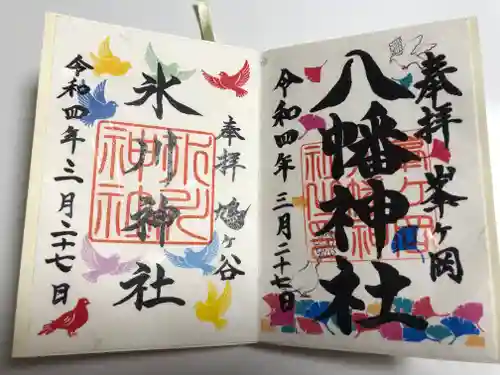 奉拝 峯ヶ岡
八幡神社
令和四年 三月二十七日
奉拝 鳩ヶ谷
氷川神社
令和四年三月二十七日